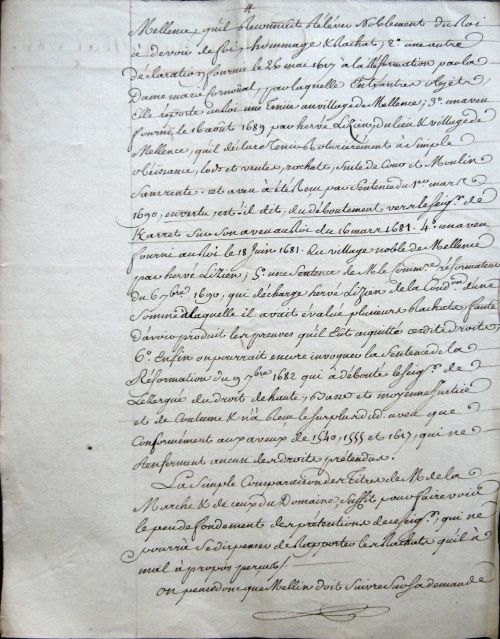 4
Mellence, qu'il Reconnuit Relever Noblement du Roi
à devoir de foi, hommage & Rachat; 2.° une autre
déclaration fournie le 26 mai 1617 à la Réformation par la
Dame marie fornoual, par laquelle Entrautre objets
Elle reporte au Roi une Tenüe au village de Mellence; 3.° un aveu
fourni le 16 août 1689 par hervé Lizien, du lieu & village de
Mellence, qu'il déclare Tenir Roturièrement à Simple
obéissance, lods et ventes, rachats, Suite de Cour et Moulin
Sans rente. cet aveu à été Reçu par Sentence du 1.er mars
1690, en vertu, y est-il dit, du déboutement vers le Seig.r de
Karret Sur Son aveu au Roi du 16 mars 1681. 4.° un aveu
fourni au Roi le 18 Juin 1681. du village noble de Mellence
par hervé Lizien; 5.° une Sentence de M. le Comm.re réformateur
du 6 7bre 1690, qui décharge hervé Lizien de la Cond.on d'une
Somme à laquelle il avait évalué plusieurs Rachats, faute
d'avoir produit les preuves qu'il Eût acquitté cesdits droits;
6.° Enfin on pourrait encore invoquer la Sentence de la
Réformation du 9 7bre 1682 qui à débouté le Seig.r de
Lézergué du droit de haute, basse et moyenne Justice
et de Coutume & n'a Reçu le Surplus dud. aveu que
Conformément aux aveux de 1540, 1555 et 1617, qui ne
Renferment aucun des droits prétendus.
La Simple Comparaison des Titres de M. de la
Marche & de ceux du Domaine, Suffit pour faire voir
le peu de fondement des prétentions de ce Seig.r, qui ne
pourra Se dispenser de Rapporter les Rachats qu'il à
mal à propos perçus.
on pense donc que Mellin doit Suivre Sur la demande